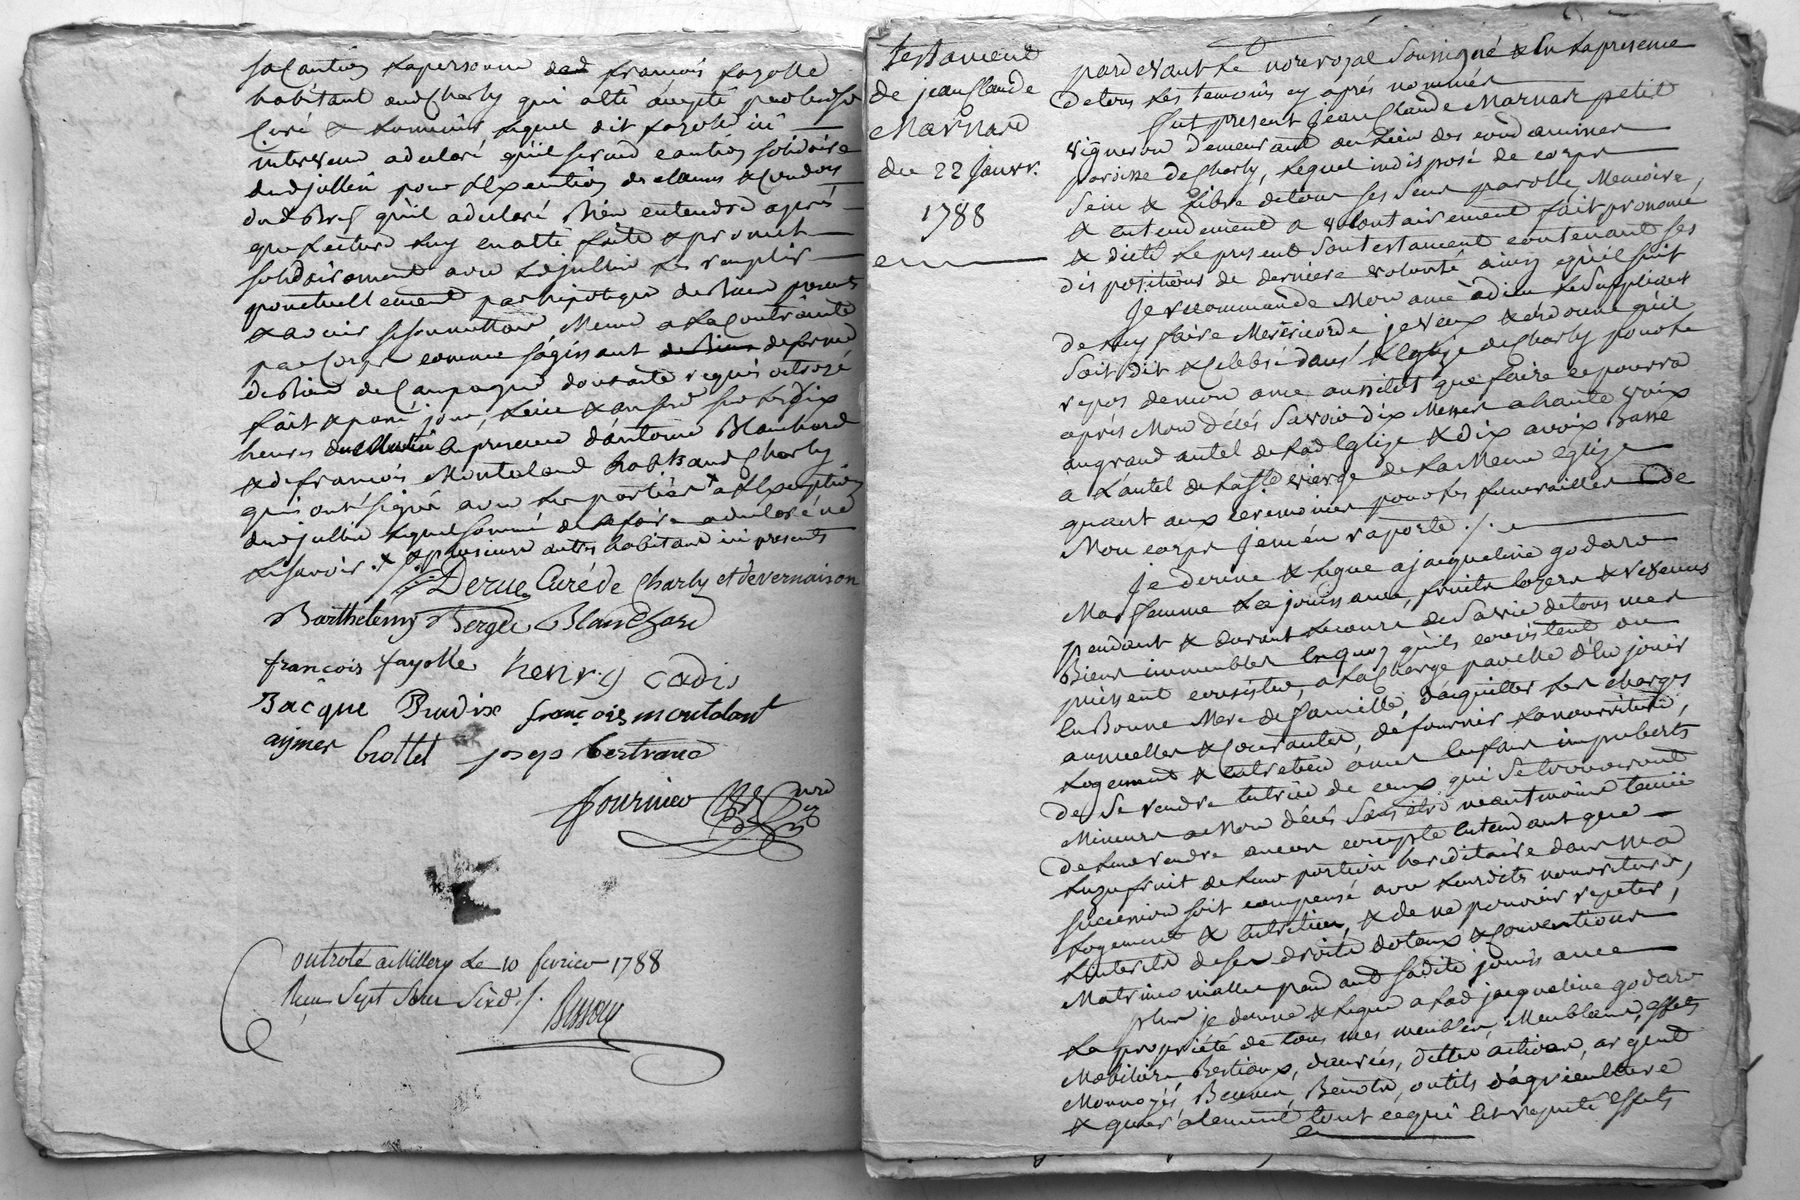 sa caution la personne dud françois fayolle
habitant aud Charly qui a été accepté par led sr
Curé & Luminier lequel dit fayolle ici
intervenu a declaré qu'il se rend caution solidaire
dud jullien pour l'execution des clauses & condons
qu'il a declaré bien entendre aprés
que lecture luy en a été faite & promet
solidairement avec led jullien les remplir
ponctuellement par hipoteque de biens presents
& avenir se soumettant Meme a la contrainte
par Corps comme s'agissant de ferme
de bien de Campagne dont acte requis octroyé
fait & passé jour, lieu & an susd sur les dix
heures du Matin en presence d'antoine Blanchard
& de françois Montaland habits aud Charly
qui ont signé avec les parties a l'exception
dud jullien lequel sommé de le faire a declaré ne
le savoir ./. & plusieurs autres habitans ici presents
Derue Curé de Charly et de vernaison
Barthelemy Berger Blanchard
françois fayolle henry cadis
Jacque Bradix françois montalant
aymer Grottet josep bertrand
fournier
Controlé a Millery le 10 fevrier 1788
Reçu Sept sous Six d. /. Bissou
testament
de jean Claude
Marnard
du 22 janvr.
1788
pardevant Le nore royal soussigné & En la presence
de tous les temoins cy aprés nommés
fut present jean Claude Marnar petit
vigneron demeurant au Lieu des condamines
paroisse de Charly, lequel indisposé de corps
sein & Libre de tous ses sens parolle, Memoire
& entendement a volontairement fait prononcé
& dicté Le present son testament contenant ses
dispositions de derniere volonté ainsy qu'il suit
Je recommande Mon ame à dieu le suppliant
de luy faire Misericorde je veux & ordonne qu'il
soit dit & Celebré dans L'Eglize de Charly pour le
repos de mon ame aussitot que faire ce pourra
aprés Mon décés savoir dix Messes a haute voix
au grand autel de lad Eglize & dix a voix Basse
a l'autel de la ste vierge de la Meme eglize
quant aux ceremonies pour les funerailles De
Mon corps je m'en raporte ./.
Je donne & legue a jacqueline godard
Ma femme La jouissance, fruits loyers & revenus
pendant & durant Le cours de Sa vie de tous mes
Biens immeubles en quoy qu'ils consistent ou
puissent consister, a la charge par elle d'en jouir
En Bonne Mere de famille, d'aquitter les charges
annuelles & Courantes, de fournir la nourriture,
Logement & Entretien a mes Enfans impuberts
de Se rendre tutrice de ceux qui Se trouveront
Mineurs a Mon décés Sans etre neantmoins tenue
de leur rendre aucun compte Entendant que
L'uzufruit de leur portion hereditaire dans Ma
succession soit compensé avec leurdits nourriture,
Logement & Entretien, & de ne pouvoir repeter,
L'interets de ses droits dotaux & Conventions
Matrimonialles pendant sadite jouissance
plus je donne & legue a lad jacqueline godard
La proprieté de tous mes meubles, Meublans, Effets
Mobiliers Bestiaux, danrées, dettes actives, argent
Monnoyés, Bennes, Benots, outils d'agriculture
& generalement tout ce qui est reputé Effets